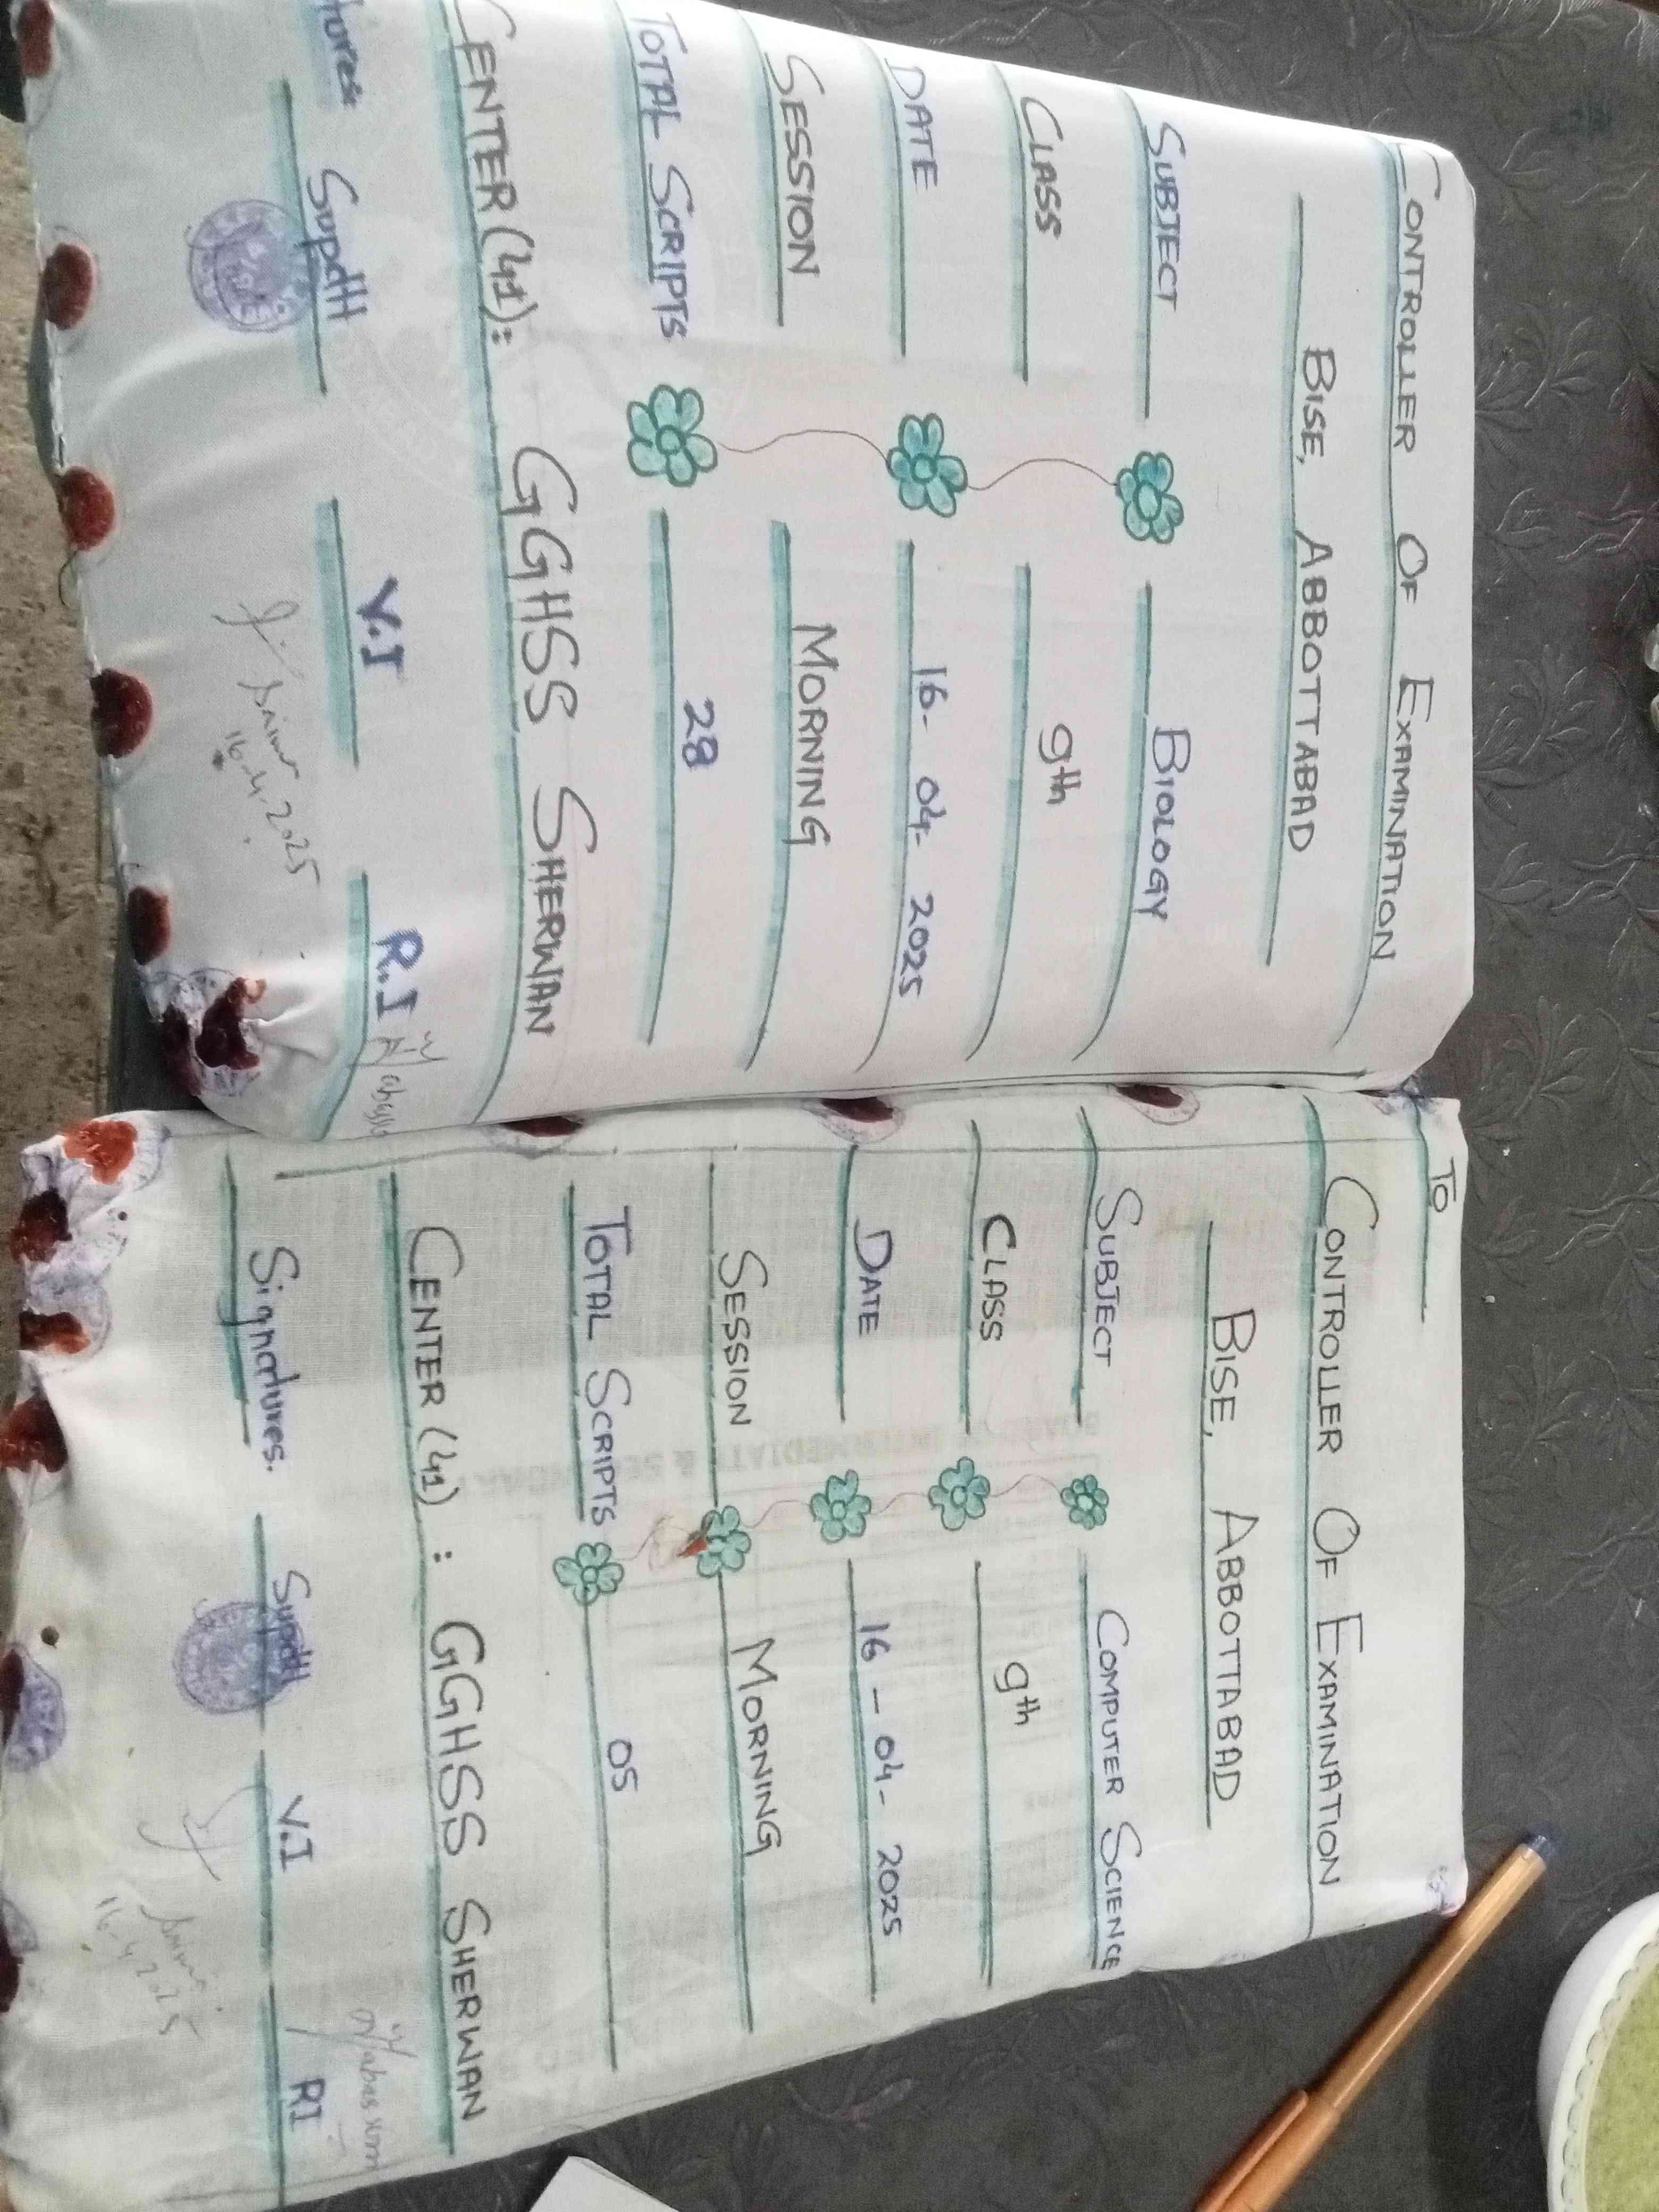 CONTROLLER OF EXAMINATION
BISE, ABBOTTABAD
SUBJECT BIOLOGY
CLASS 9th
DATE 16-04-2025
SESSION MORNING
TOTAL SCRIPTS 28
CENTER (41): GGHSS SHERWAN
tures: Supdtt V.I R.I
16-4-2025
TO
CONTROLLER OF EXAMINATION
BISE, ABBOTTABAD
SUBJECT COMPUTER SCIENCE
CLASS 9th
DATE 16-04-2025
SESSION MORNING
TOTAL SCRIPTS 05
CENTER (41): GGHSS SHERWAN
Signatures. Supdtt V.I RI
16-4-2025
BOARD OF INTERMEDIATE & SECONDARY